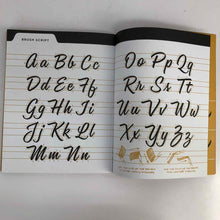 BRUSH SCRIPT
Aa Bb Cc
Dd Ee Ff
Gg Hh Ii
Jj Kk Ll
Mm Nn
Oo Pp Qq
Rr Ss Tt
Uu Vv Ww
Xx Yy Zz